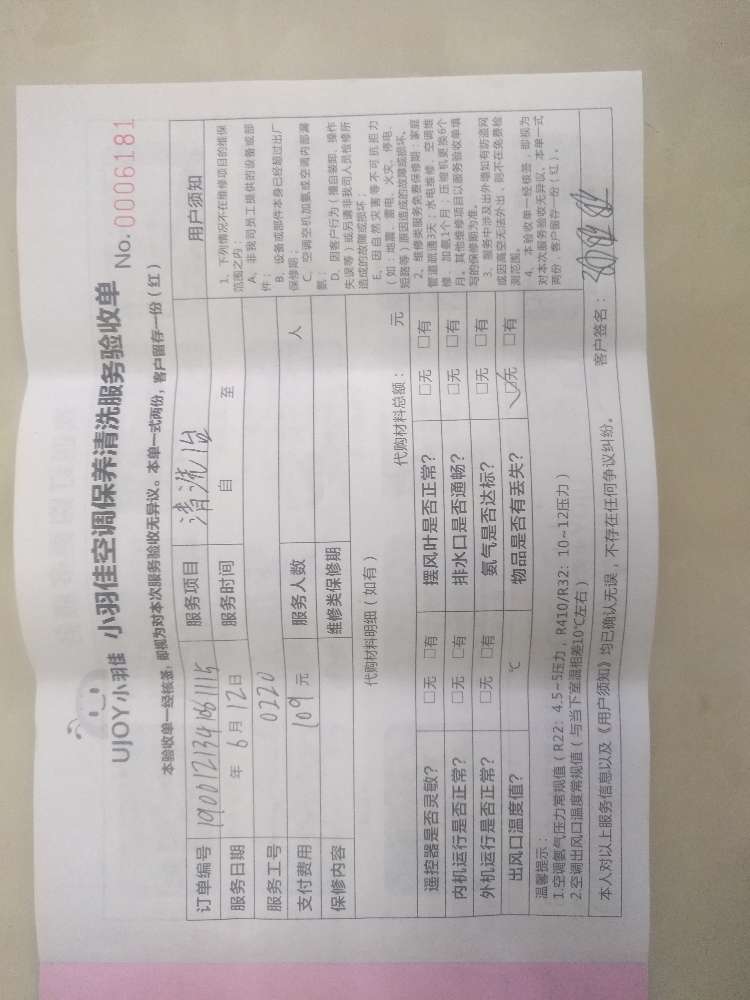 UJOY小羽佳 小羽佳空调保养清洗服务验收单 No. 0006181
本验收单一经核签，即视为对本次服务验收无异议。本单一式两份，客户留存一份（红）
订单编号 服务项目 清洗1台 用户须知
服务日期 年 6 月 12 日 服务时间 自 至
服务工号 0220
支付费用 109 元 服务人数 人
保修内容 维修类保修期
代购材料明细（如有）
代购材料总额： 元
遥控器是否灵敏？ □无 □有 摆风叶是否正常？ □无 □有
内机运行是否正常？ □无 □有 排水口是否通畅？ □无 □有
外机运行是否正常？ □无 □有 氨气是否达标？ □无 □有
出风口温度值？ ℃ 物品是否有丢失？ ☑无 □有
1、下列情况不在维修项目的维保
范围之内：
A、非我司员工提供的设备或部
件；
B、设备或部件本身已经超过出厂
保修期；
C、空调空机加氨或空调内部漏
氨；
D、因客户行为（擅自装卸、操作
失误等）或另请非我司人员检修所
造成的故障或损坏；
E、因自然灾害等不可抗拒力
（如：地震、雷电、火灾、停电、
短路等）原因造成的故障或损坏。
2、维修类服务免费保修期：家庭
管道疏通3天；水电维修、空调维
修、加氨1个月；压缩机更换6个
月。其他维修项目以服务验收单填
写的保修期为准。
3、服务中涉及出外墙如有防盗网
或因高空无法外出，则不在免费检
测范围。
4、本验收单一经核签，即视为
对本次服务验收无异议。本单一式
两份，客户留存一份（红）。
温馨提示：
1.空调氨气压力常规值（R22：4.5~5压力，R410/R32：10~12压力）
2.空调出风口温度常规值（与当下室温相差10℃左右）
本人对以上服务信息以及《用户须知》均已确认无误，不存在任何争议纠纷。 客户签名：